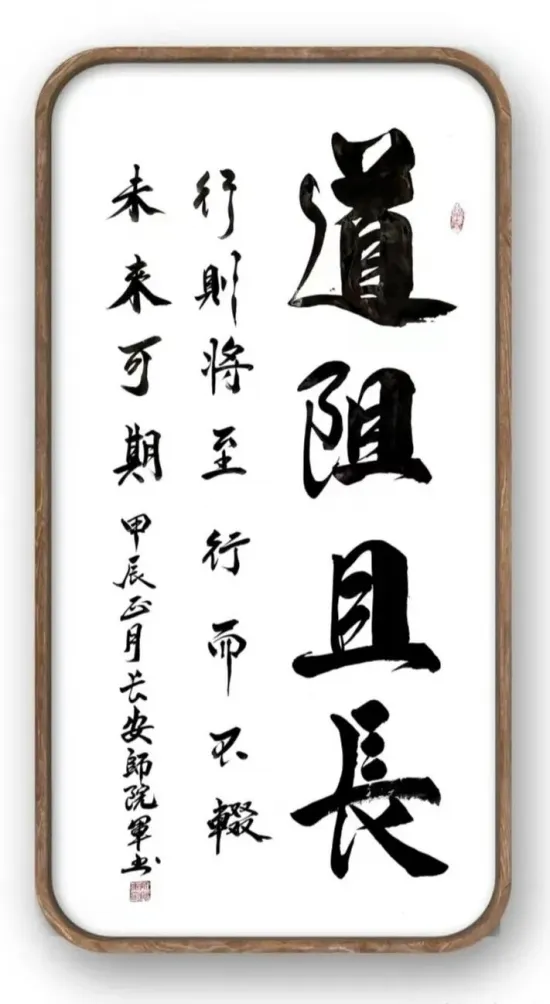 道阻且長
行則將至行而不輟
未来可期
甲辰正月长安師院軍书